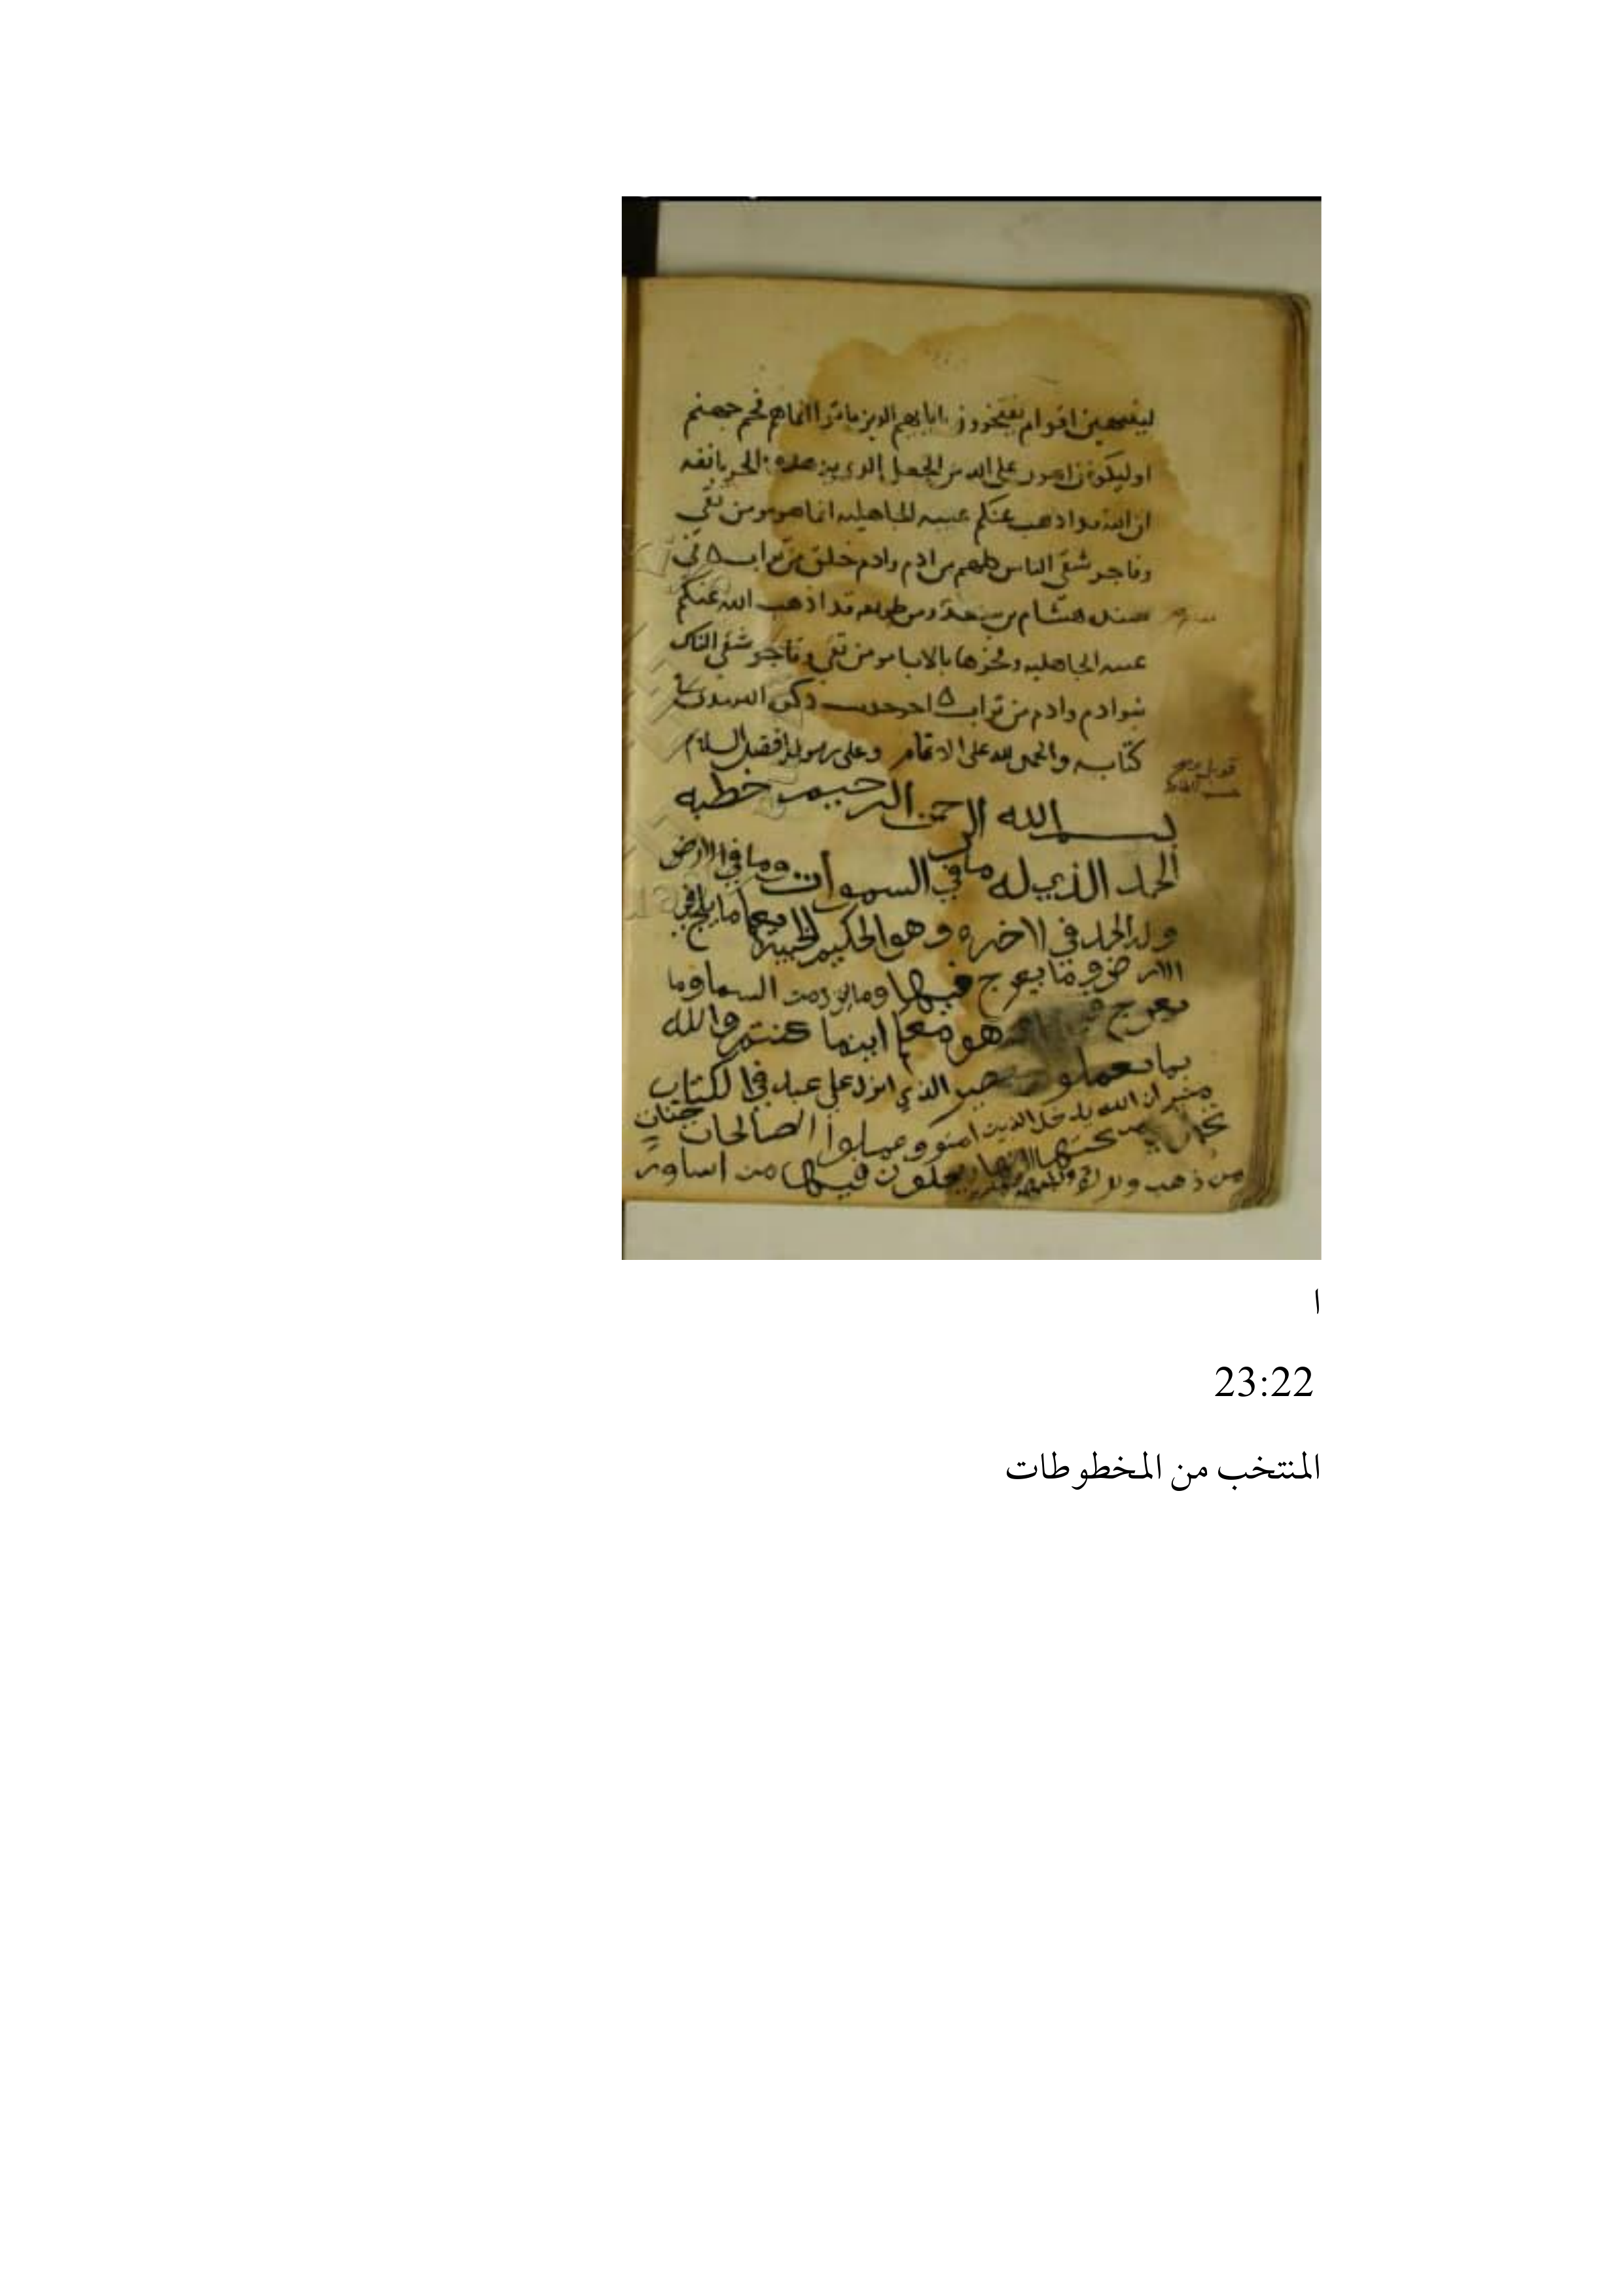 لينتهين اقوام يفتخرون بابايهم الدين ماتوا انما هم فحم جهنم
او ليكونن اهون على الله من الجعل الدى يدهده الخر بانفه
ان الله قد ادهب عنكم عبيه الجاهليه انما هو مومن تقي
وفاجر شقي الناس كلهم بنو ادم وادم خلق من تراب
هشام بن سعد قد اذهب الله عنكم
عبيه الجاهليه وفخرها بالابا مومن تقي وفاجر شقي الناس
بنو ادم وادم من تراب اخر
كتابه والحمد لله على الاتمام وعلى رسوله افضل السلام
قوبل
بسم الله الرحمن الرحيم خطبه
الحمد الذي له ما في السموات وما في الارض
وله الحمد في الاخره وهو الحكيم الخبير يعلم ما يلج في
الارض وما يعرج فيها وما ينزل من السما وما
يعرج وهو معكم اينما كنتم والله
بما تعملون الذي انزل على عبده الكتاب
ان الله يدخل الذين امنو وعملوا الصالحات جنات
من تحتها الانهار يحلون فيها من اساور
من ذهب
ا
23:22
المنتخب من المخطوطات